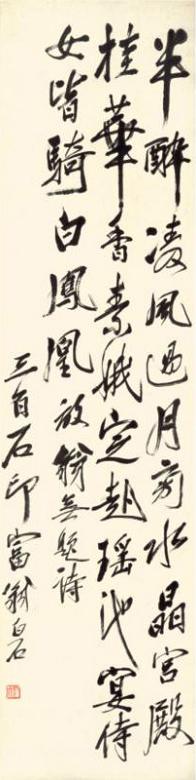 半醉凌風過月旁水晶宮殿
桂華香素娥定赴瑤池宴侍
女皆騎白鳳凰放翁無題詩
三百石印富翁白石